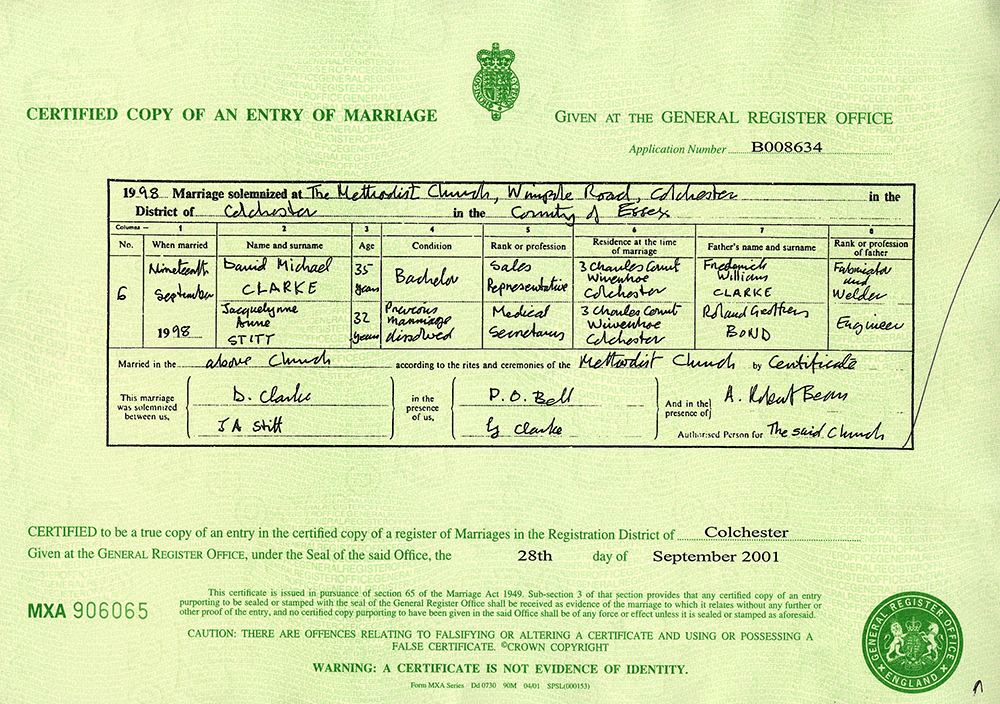 CERTIFIED COPY OF AN ENTRY OF MARRIAGE
GIVEN AT THE GENERAL REGISTER OFFICE
Application Number B008634
1998. Marriage solemnized at The Methodist Church, Wimpole Road, Colchester in the
District of Colchester in the County of Essex
Columns :— 1 2 3 4 5 6 7 8
No. When married Name and surname Age Condition Rank or profession Residence at the time of marriage Father's name and surname Rank or profession of father
6
Nineteenth
September
1998
David Michael
CLARKE
35
years
Bachelor
Sales
Representative
3 Charles Court
Wivenhoe
Colchester
Frederick
William
CLARKE
Fabricator
and
Welder
Jacquelynne
Anne
STITT
32
years
Previous
marriage
dissolved
Medical
Secretary
3 Charles Court
Wivenhoe
Colchester
Roland Geoffrey
BOND
Engineer
Married in the above Church according to the rites and ceremonies of the Methodist Church by Certificate
This marriage
was solemnized
between us,
D. Clarke
JA Stitt
in the
presence
of us,
P. O. Bell
Clarke
And in the
presence of
A. Robert Bean
Authorised Person for The said Church
CERTIFIED to be a true copy of an entry in the certified copy of a register of Marriages in the Registration District of Colchester
Given at the GENERAL REGISTER OFFICE, under the Seal of the said Office, the 28th day of September 2001
MXA 906065
This certificate is issued in pursuance of section 65 of the Marriage Act 1949. Sub-section 3 of that section provides that any certified copy of an entry
purporting to be sealed or stamped with the seal of the General Register Office shall be received as evidence of the marriage to which it relates without any further or
other proof of the entry, and no certified copy purporting to have been given in the said Office shall be of any force or effect unless it is sealed or stamped as aforesaid.
CAUTION: THERE ARE OFFENCES RELATING TO FALSIFYING OR ALTERING A CERTIFICATE AND USING OR POSSESSING A
FALSE CERTIFICATE. ©CROWN COPYRIGHT
WARNING: A CERTIFICATE IS NOT EVIDENCE OF IDENTITY.
Form MXA Series Dd 0730 90M 04/01 SPSL(000153)
GENERAL REGISTER OFFICE
ENGLAND